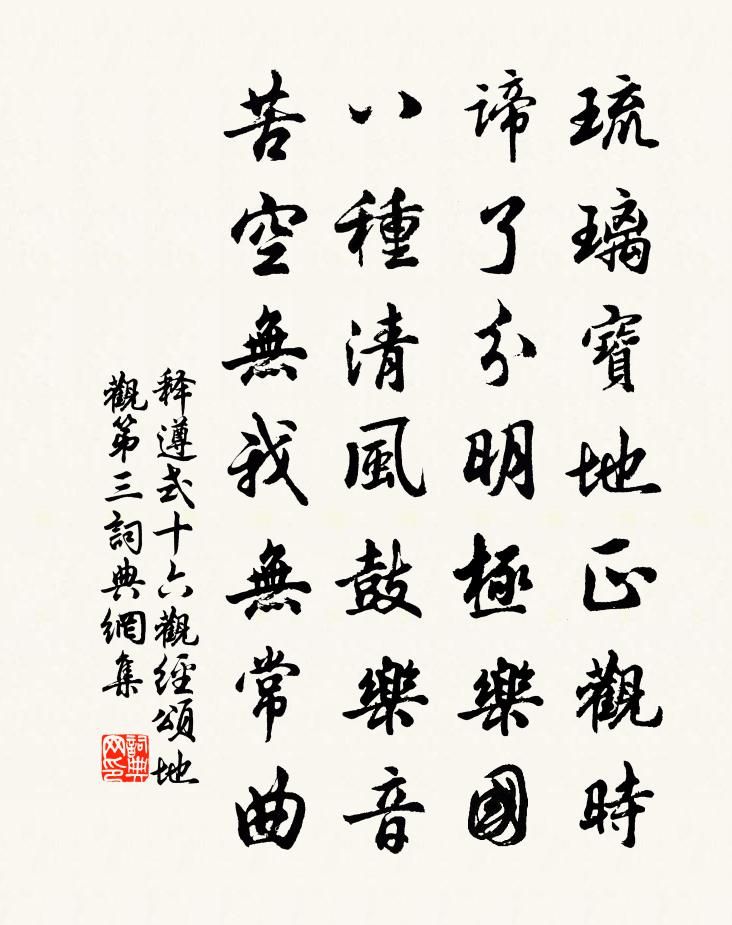 琉璃寶地正觀時
谛了分明極樂國
八種清風鼓樂音
苦空無我無常曲
释遵式十六觀經頌地
觀第三詞典網集
詞典网印